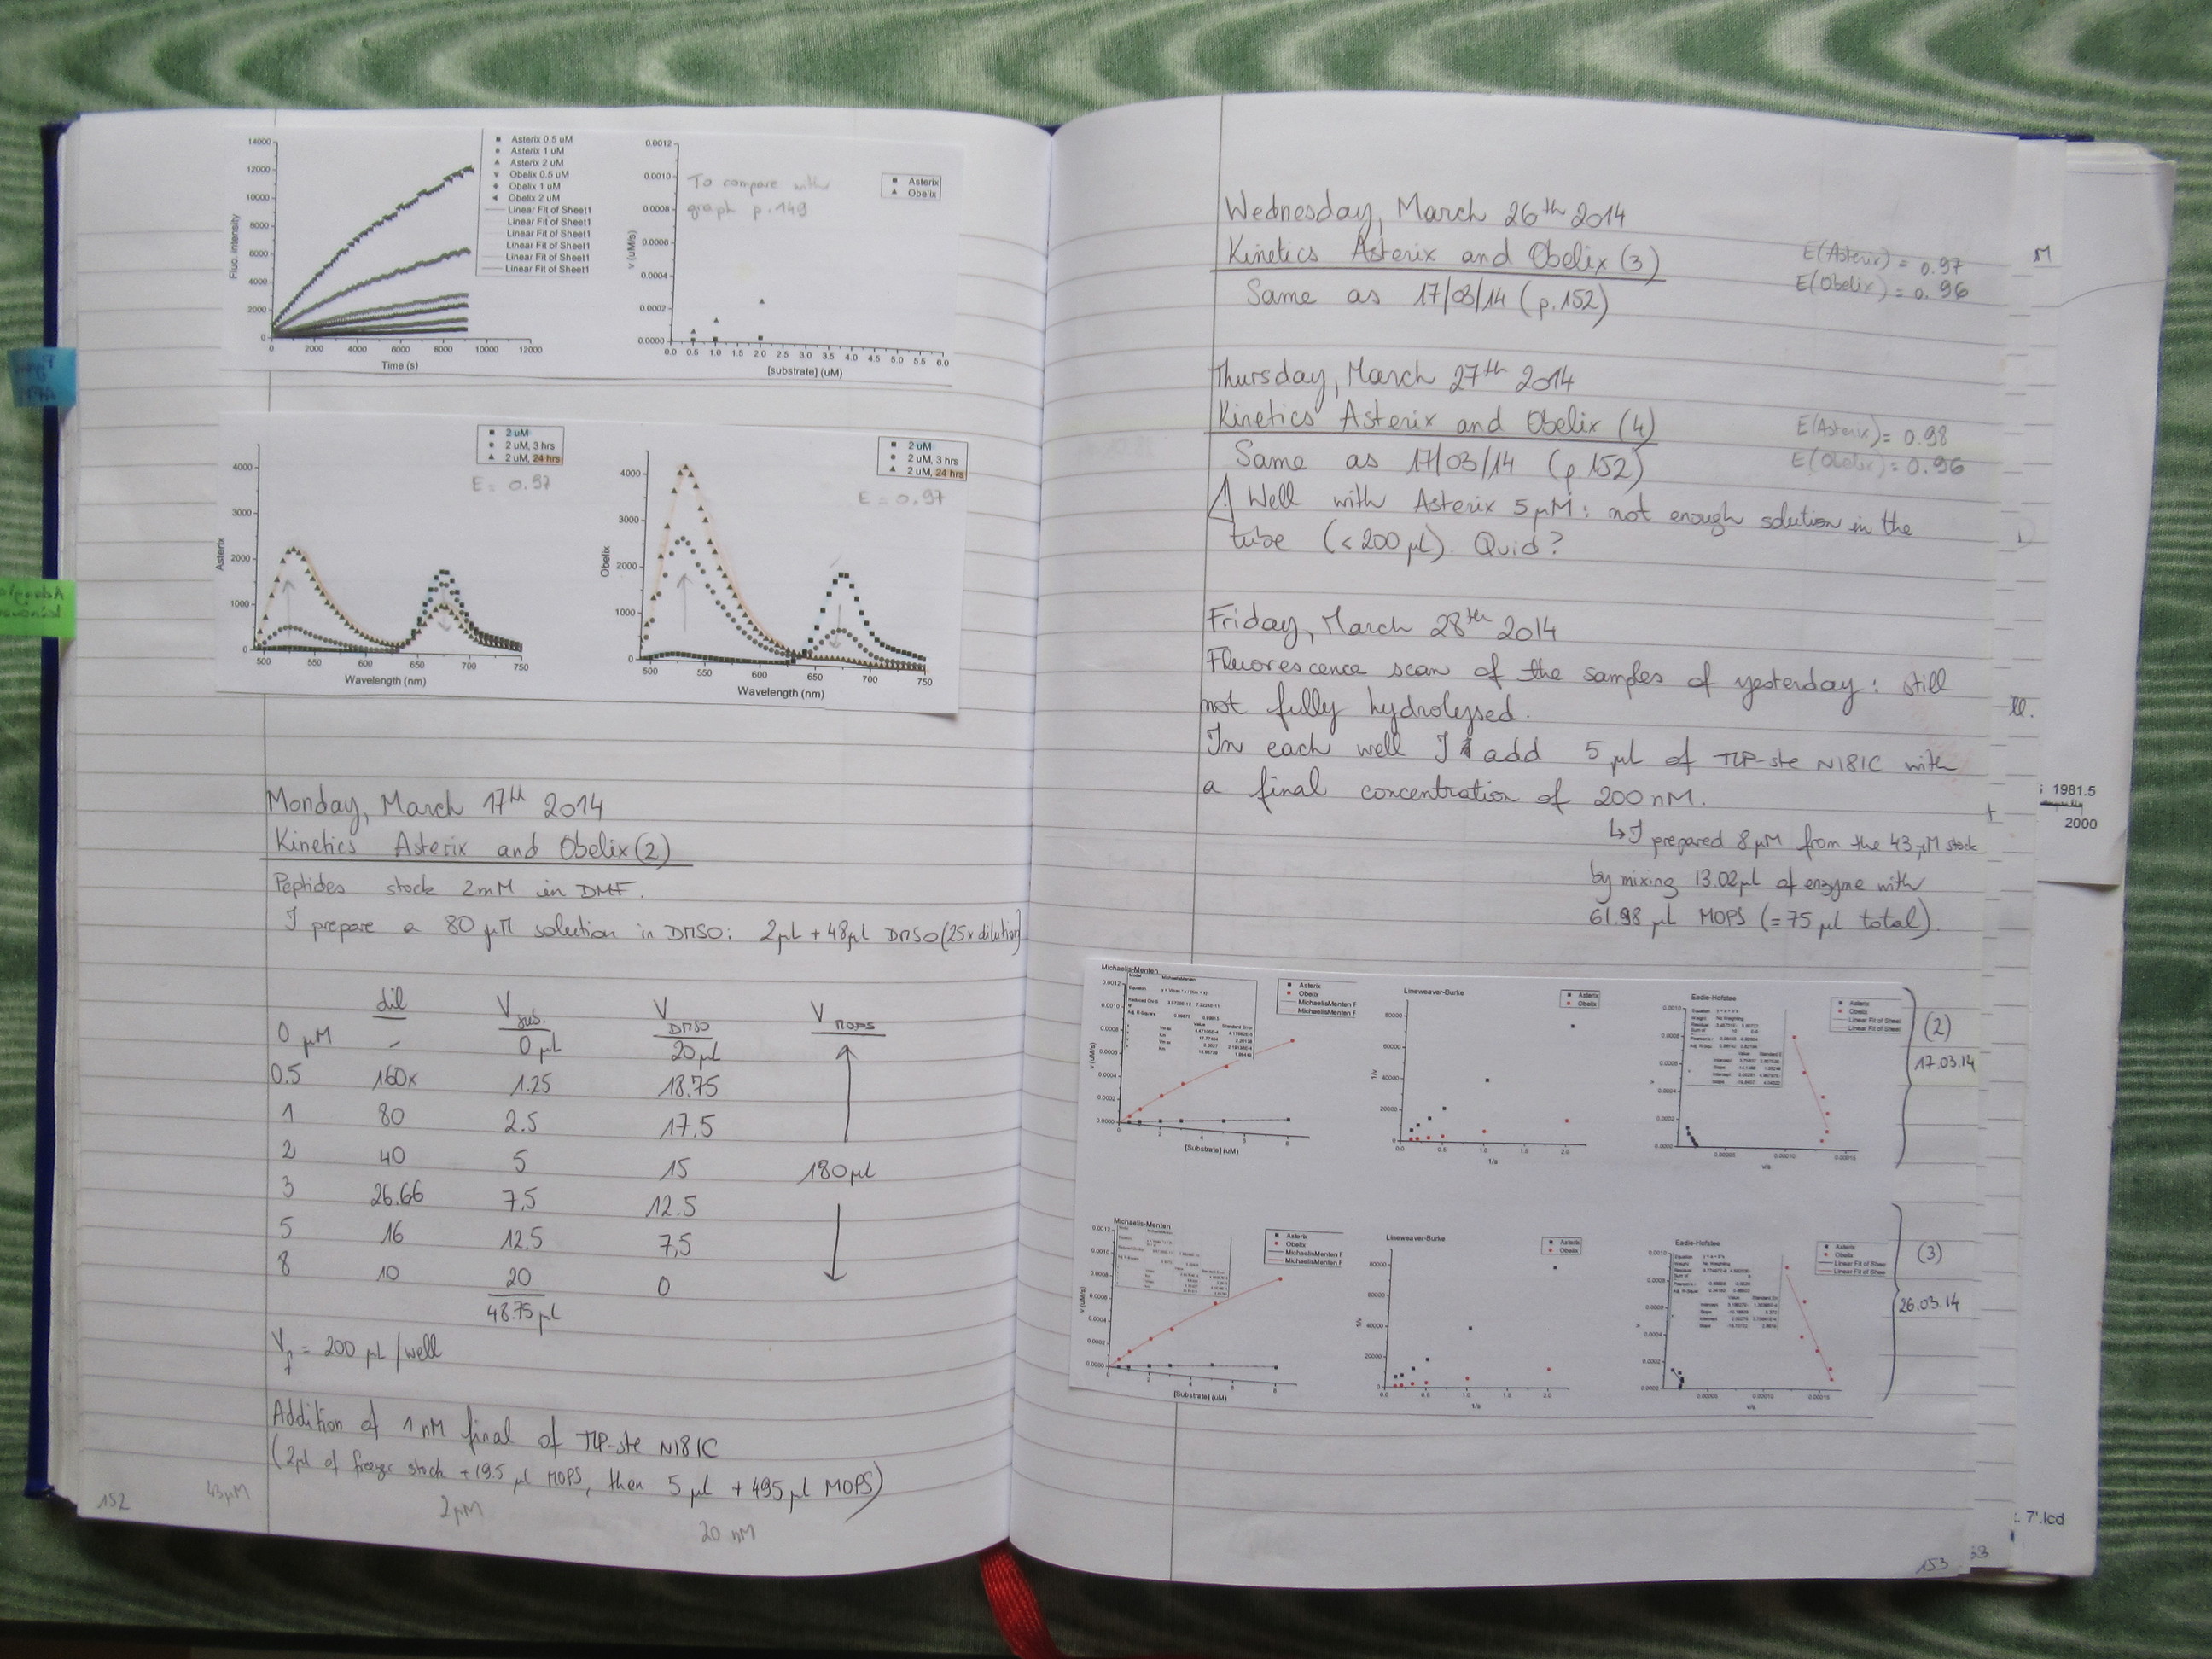 14000
12000
10000
8000
6000
4000
2000
0
Fluo. intensity
0 2000 4000 6000 8000 10000 12000
Time (s)
Asterix 0.5 uM
Asterix 1 uM
Asterix 2 uM
Obelix 0.5 uM
Obelix 1 uM
Obelix 2 uM
Linear Fit of Sheet1
Linear Fit of Sheet1
Linear Fit of Sheet1
Linear Fit of Sheet1
Linear Fit of Sheet1
Linear Fit of Sheet1
0.0012
0.0010
0.0008
0.0006
0.0004
0.0002
0.0000
v (uM/s)
To compare with
graph p.149
Asterix
Obelix
0.0 0.5 1.0 1.5 2.0 2.5 3.0 3.5 4.0 4.5 5.0 5.5 6.0
[substrate] (uM)
2 uM
2 uM, 3 hrs
2 uM, 24 hrs
E = 0.97
4000
3000
2000
1000
0
Asterix
500 550 600 650 700 750
Wavelength (nm)
2 uM
2 uM, 3 hrs
2 uM, 24 hrs
E = 0.97
4000
3000
2000
1000
0
Obelix
500 550 600 650 700 750
Wavelength (nm)
Monday, March 17th 2014
Kinetics Asterix and Obelix (2)
Peptides stock 2mM in DMF.
I prepare a 80 µM solution in DMSO: 2µL + 48µL DMSO (25x dilution)
dil Vsub. VDMSO VMOPS
0 µM - 0 µL 20µL
0.5 160x 1.25 18.75
1 80 2.5 17.5
2 40 5 15 180µL
3 26.66 7,5 12.5
5 16 12.5 7,5
8 10 20 0
48.75µL
Vf = 200 µL/well
Addition of 1 nM final of TLP-ste N181C
(2µL of freezer stock + 19.5 µL MOPS, then 5 µL + 495 µL MOPS)
43µM 2µM 20 nM
152
Wednesday, March 26th 2014
Kinetics Asterix and Obelix (3)
Same as 17/03/14 (p.152)
E(Asterix) = 0.97
E(Obelix) = 0.96
Thursday, March 27th 2014
Kinetics Asterix and Obelix (4)
Same as 17/03/14 (p.152)
E(Asterix) = 0.98
E(Obelix) = 0.96
Well with Asterix 5 µM: not enough solution in the
tube (<200 µL). Quid?
Friday, March 28th 2014
Fluorescence scan of the samples of yesterday: still
not fully hydrolysed.
In each well I add 5 µL of TLP-ste N181C with
a final concentration of 200 nM.
↳ I prepared 8 µM from the 43 µM stock
by mixing 13.02µL of enzyme with
61.98 µL MOPS (= 75 µL total).
Michaelis-Menten
Asterix
Obelix
MichaelisMenten F
MichaelisMenten F
v (uM/s)
[Substrate] (uM)
Lineweaver-Burke
Asterix
Obelix
80000
60000
40000
20000
0
1/v
0.0 0.5 1.0 1.5 2.0
1/s
Eadie-Hofstee
Asterix
Obelix
Linear Fit of Sheet
Linear Fit of Sheet
0.00005 0.00010 0.00015
v/s
(2)
17.03.14
Michaelis-Menten
Asterix
Obelix
MichaelisMenten F
MichaelisMenten F
v (uM/s)
[Substrate] (uM)
Lineweaver-Burke
Asterix
Obelix
80000
60000
40000
20000
0
1/v
0.0 0.5 1.0 1.5 2.0
1/s
Eadie-Hofstee
Asterix
Obelix
Linear Fit of Shee
Linear Fit of Shee
0.00005 0.00010 0.00015
v/s
(3)
26.03.14
153
1981.5
2000
7'.lcd